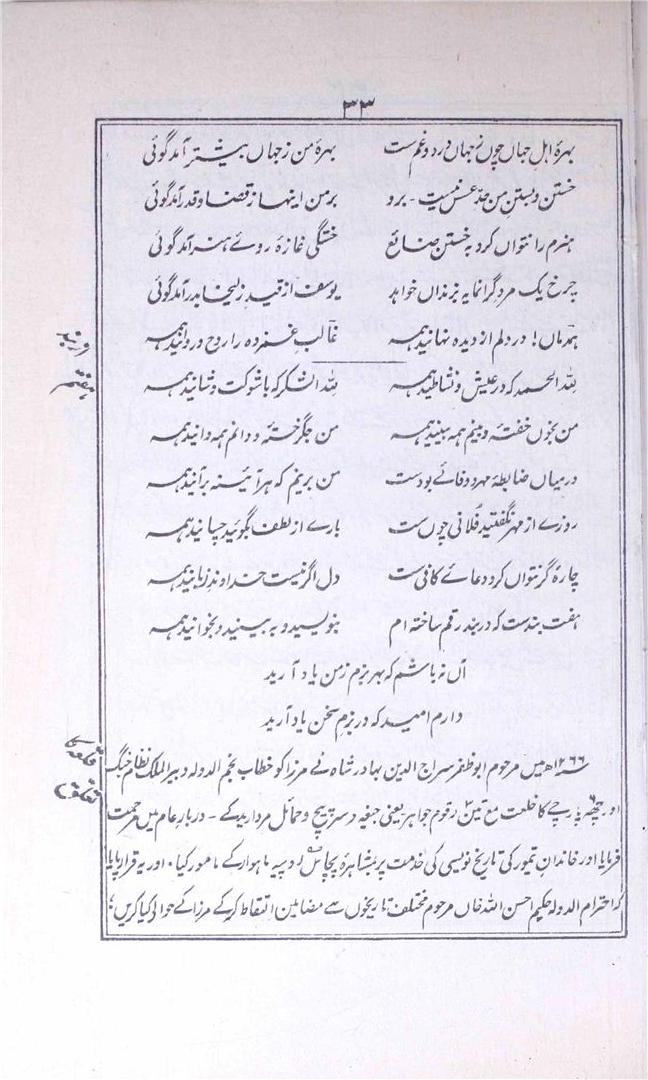 ۳۳
بہرۂ اہل جہاں چوں ز جہاں درد و غم ست بہرۂ من ز جہاں بیشتر آمد گوئی
خستن و بستن من حدِّ عسس نیست ۔ برو بر من اینہا ز قضا و قدر آمد گوئی
ہنرم را نتواں کرد بہ خستن ضائع خستگی غازۂ روئے ہنر آمد گوئی
چرخ یک مرد گرانمایہ بزنداں خواہد یوسف از قید زلیخا بدر آمد گوئی
ہمدماں! در دلم از دیدہ نہانید ہمہ غالب غمزدہ را روح و روانید ہمہ
للہ الحمد کہ در عیش و نشاطید ہمہ للہ الشکر کہ با شوکت و شانید ہمہ
من بخوں خفتہ و بینم ہمہ بینید ہمہ من جگر خستہ و دانم ہمہ دانید ہمہ
درمیاں ضابطۂ مہر و وفائے بودست من برینم کہ ہر آئینہ برآنید ہمہ
روزے از مہر نگفتید فلانی چوں ست بارے از لطف بگوئید چسانید ہمہ
چارہ گر نتواں کرد دعائے کافی ست دل اگر نیست خداوند زبانید ہمہ
ہفت بندست کہ در بند رقم ساختہ ام بنویسید و بہ بینید و بخوانید ہمہ
آں نہ باشم کہ بہر بزم ز من یاد آرید
دارم امید کہ در بزم سخن یاد آرید
۱۲۶۶ھ میں مرحوم ابوظفر سراج الدین بہادر شاہ نے مرزا کو خطاب نجم الدولہ دبیر الملک نظام جنگ
اور چھ ۶ پارچے کا خلعت مع تین ۳ رقوم جواہر یعنی جیغہ و سرپیچ و حمائل مروارید کے ۔ دربار عام میں مرحمت
فرمایا اور خاندان تیمور کی تاریخ نویسی کی خدمت پر بمشاہرۂ پچاس روپیہ ماہوار کے مامور کیا۔ اور یہ قرار پایا
کہ احترام الدولہ حکیم احسن اللہ خاں مرحوم مختلف تاریخوں سے مضامین التقاط کر کے مرزا کے حوالی کیا کریں؛
ہفتم
قلعہ کا
تعلق